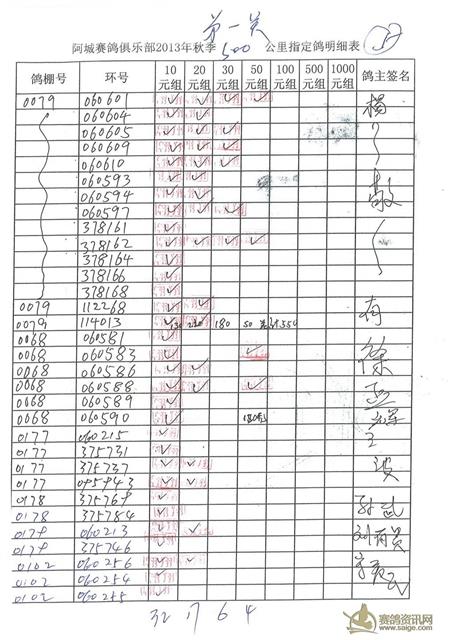 第一关
阿城赛鸽俱乐部2013年秋季 500 公里指定鸽明细表
鸽棚号 环号 10元组 20元组 30元组 50元组 100元组 500元组 1000元组 鸽主签名
0079 060601 ✓ ✓ ✓ ✓ 杨
060604 ✓ ✓
060605 ✓ ✓ ✓
060609 ✓ ✓ ✓
060610 ✓ ✓ ✓
060593 ✓ ✓
060594 ✓ ✓
060597 ✓ ✓ ✓
378161 ✓
378162 ✓ ✓ ✓ ✓
378164 ✓
378166 ✓
378168 ✓
0079 112268 ✓ ✓
0079 114013 ✓ 180 50
0068 060581 ✓
0068 060583 ✓ ✓ 徐
0068 060586 ✓ ✓
0068 060588 ✓ ✓ ✓
0068 060589 ✓
0068 060590 ✓
0177 060215 ✓ 王
0177 375731 ✓
0177 375737 ✓ ✓ 波
0177 045943 ✓ ✓
0178 375769 ✓
0178 375784 ✓
0179 060213 ✓ ✓
0179 375746 ✓
0102 060256 ✓ ✓
0102 060254 ✓
0102 060255 ✓
32 17 6 4
赛鸽资讯网
www.saige.com